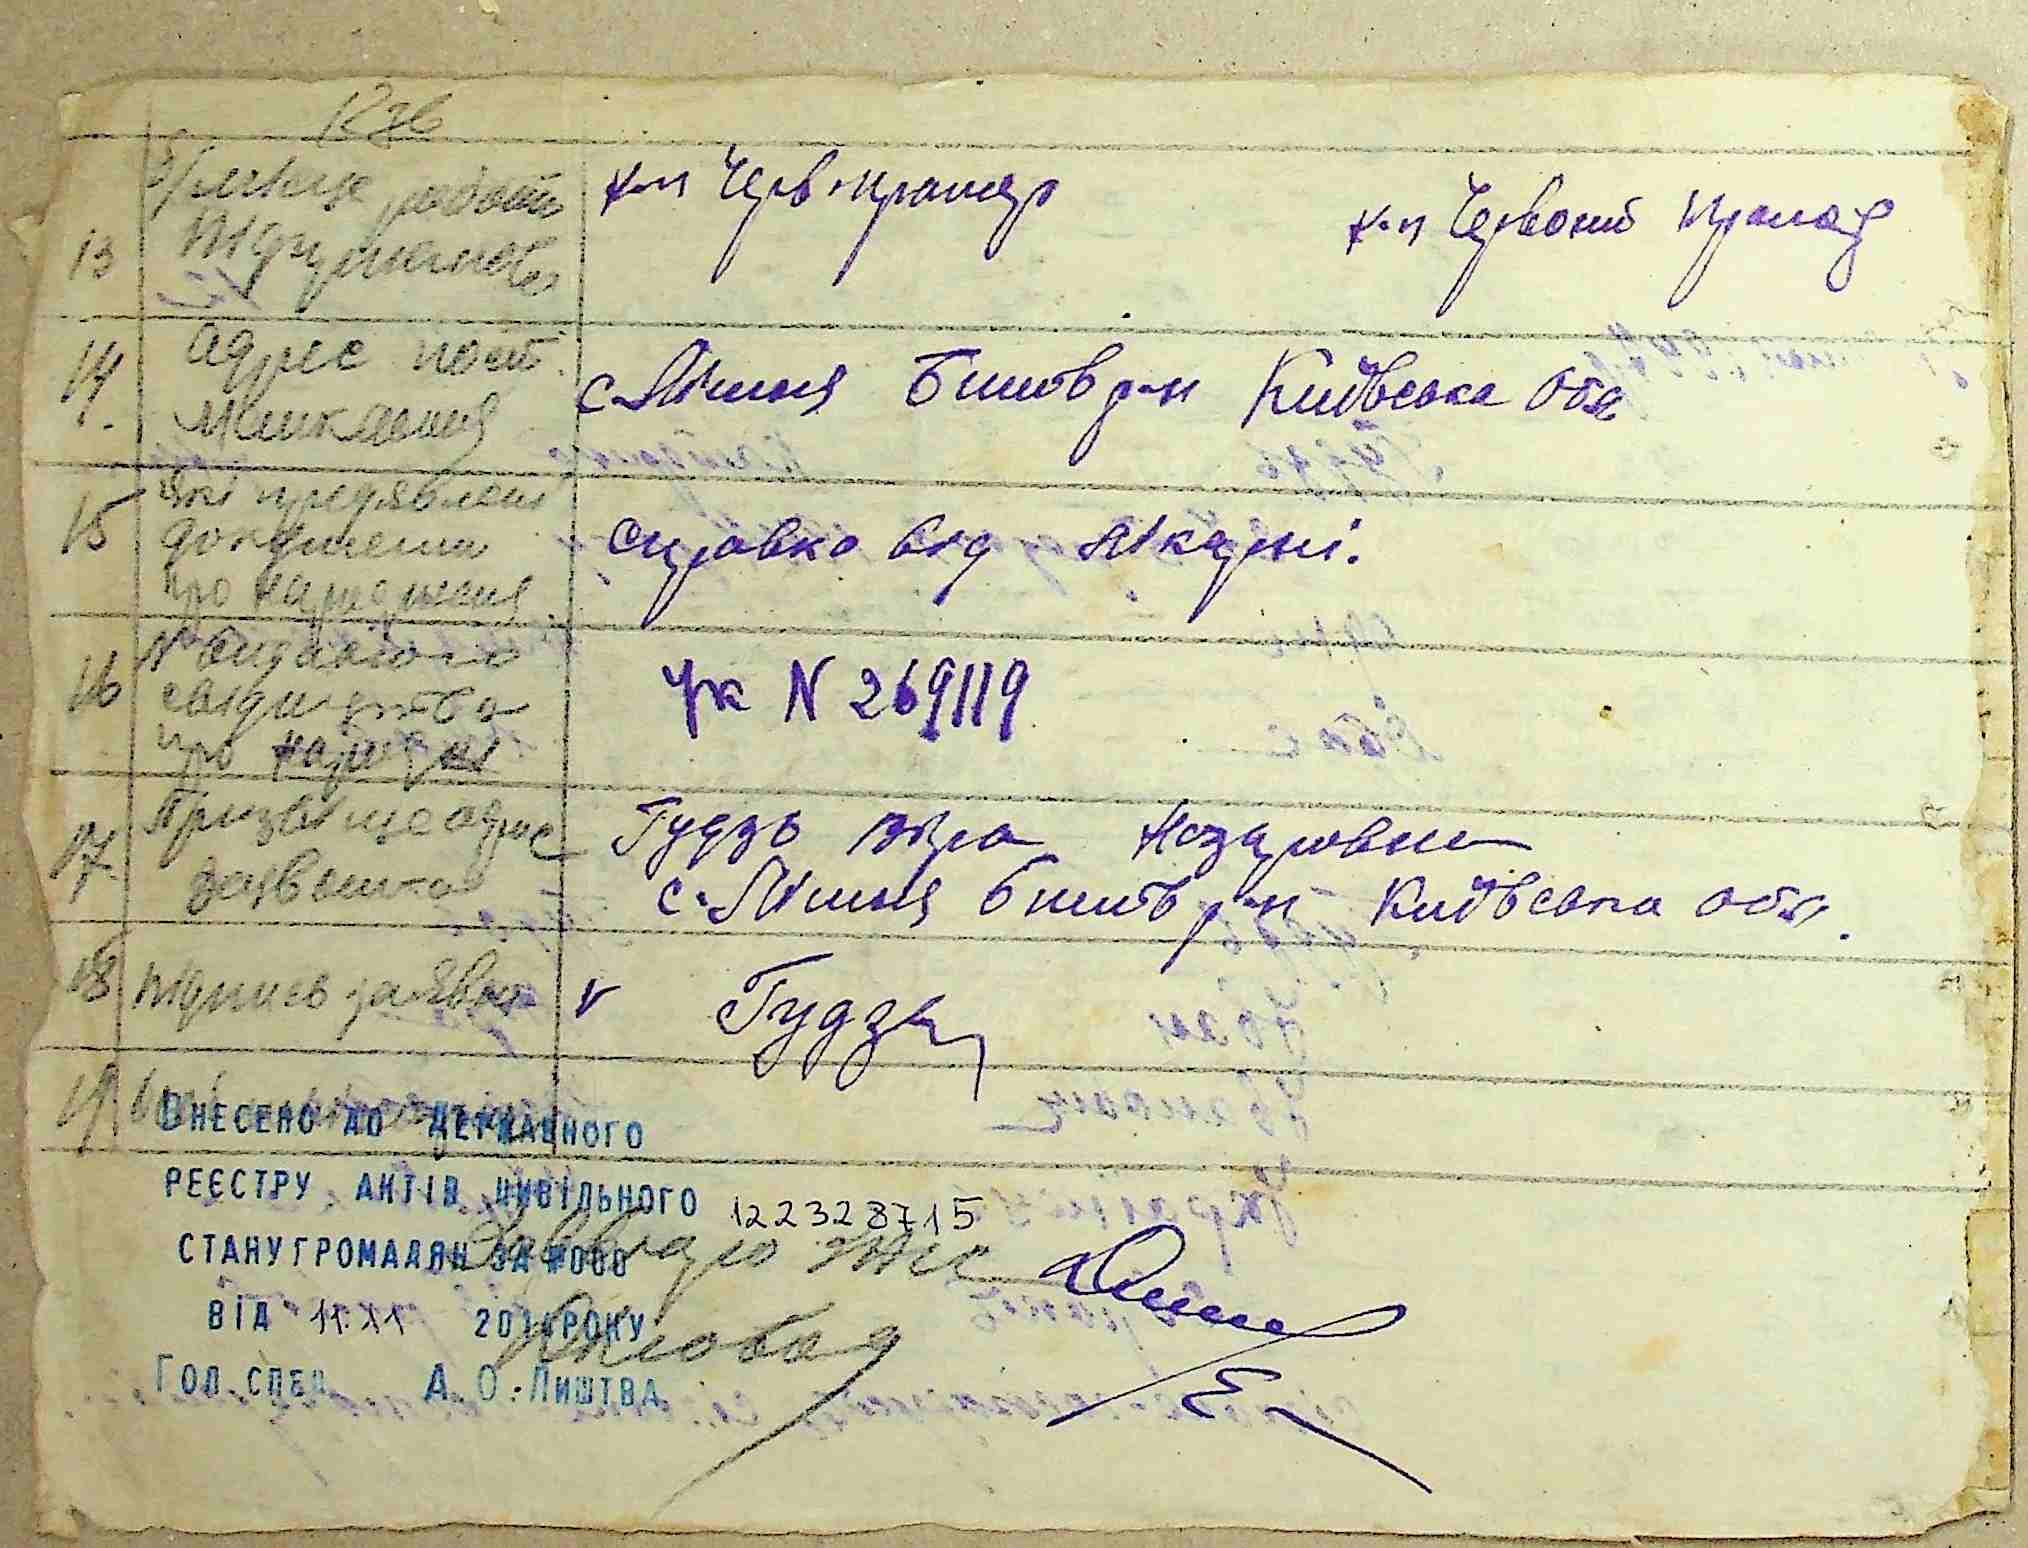 б/місце роботи
13 підприємство
к-п Черв-прапор
к-п Червоний прапор
14. Адрес пост.
мешкання
с. Лишня Бишов р-н Київська обл
15 які предявлені
документи
про народження
справка від лікарні.
16 № виданого
свідицтва
про народж
Ук N 269119
17. Призвіще адрес
заявника
Гудзь Віра Назаровна
с. Лишня Бишов р-н Київська обл.
18 Підпис заявн
v Гудзь
19
ВНЕСЕНО ДО ДЕРЖАВНОГО
РЕЄСТРУ АКТІВ ЦИВІЛЬНОГО 122328715
СТАНУ ГРОМАДЯН ЗА №000
Завбюро ЗАГС
ВІД 11.XI 201 РОКУ
ГОЛ.СПЕЦ А.О.ЛИШТВА